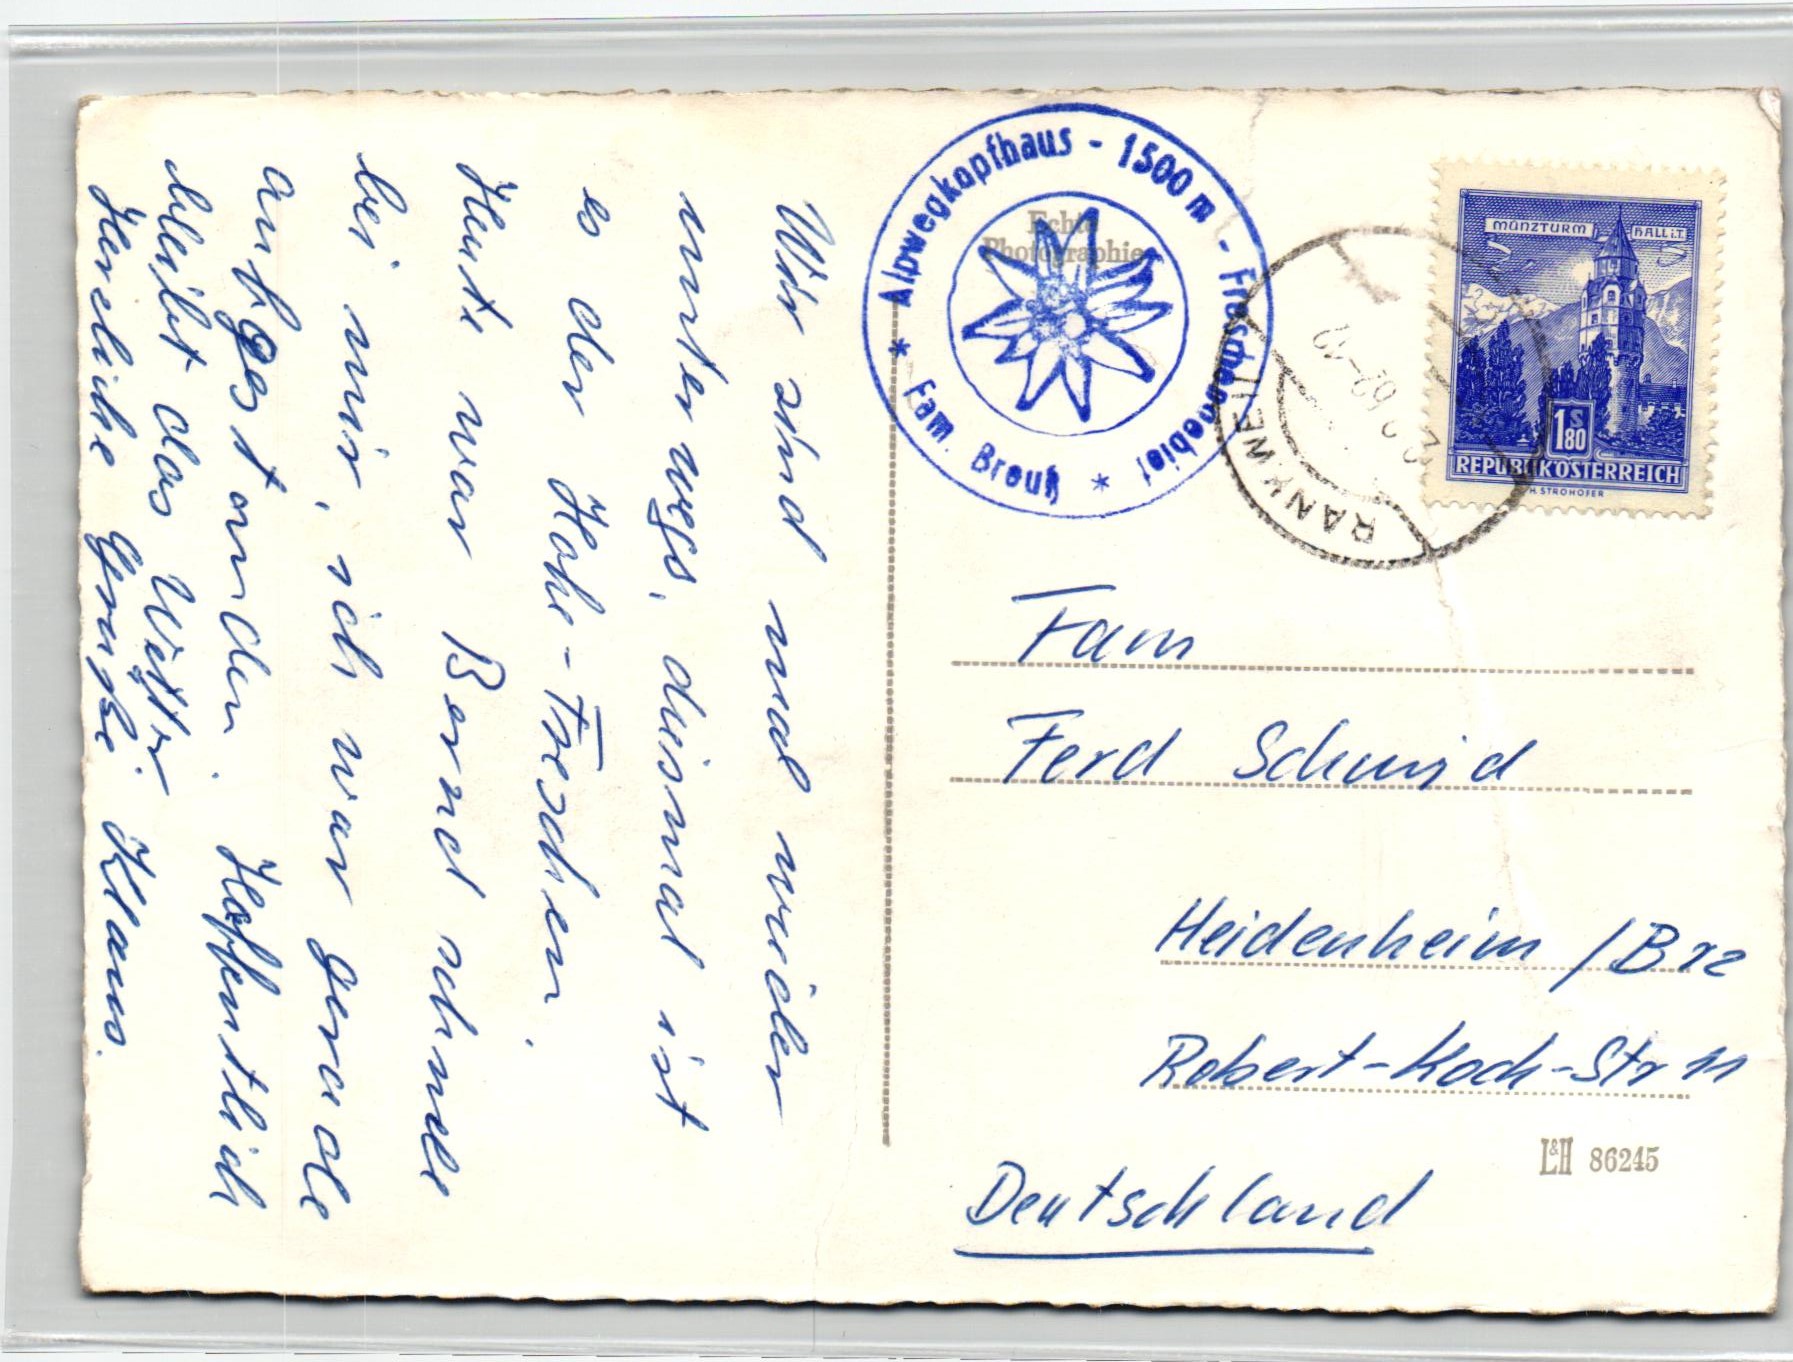 Wir sind mal wieder
unterwegs, diesmal ist
es der Hohe-Freschen.
Heute war Bernd schnell
bei mir, ich war gerade
aufgestanden. Hoffentlich
bleibt das Wetter.
Herzliche Grüße Klaus.
Alpwegkopfhaus - 1500 m - Freschengebiet
* Fam. Breuß *
Echte
Photographie
RANKWEIL
MÜNZTURM HALL i.T.
1S80
REPUBLIK ÖSTERREICH
H. STROHOFER
Fam
Ferd Schmid
Heidenheim / Brz
Robert-Koch-Str 11
L&H 86245
Deutschland